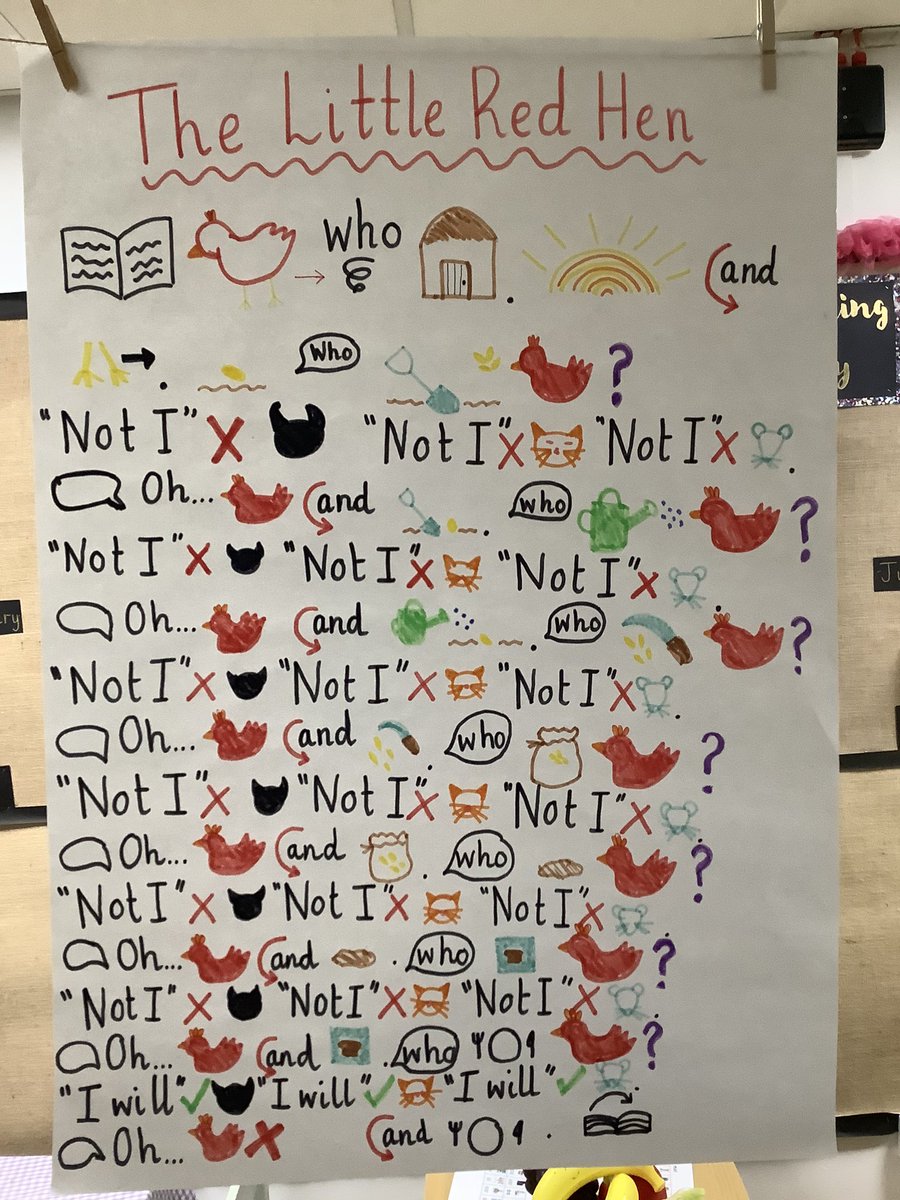 The Little Red Hen
who and
who ?
"Not I" "Not I" "Not I" .
Oh... and . who ?
"Not I" "Not I" "Not I" .
Oh... and . who ?
"Not I" "Not I" "Not I" .
Oh... and . who ?
"Not I" "Not I" "Not I" .
Oh... and . who ?
"Not I" "Not I" "Not I" .
Oh... and . who ?
"Not I" "Not I" "Not I" .
Oh... and . who ?
"I will" "I will" "I will" .
Oh... and .